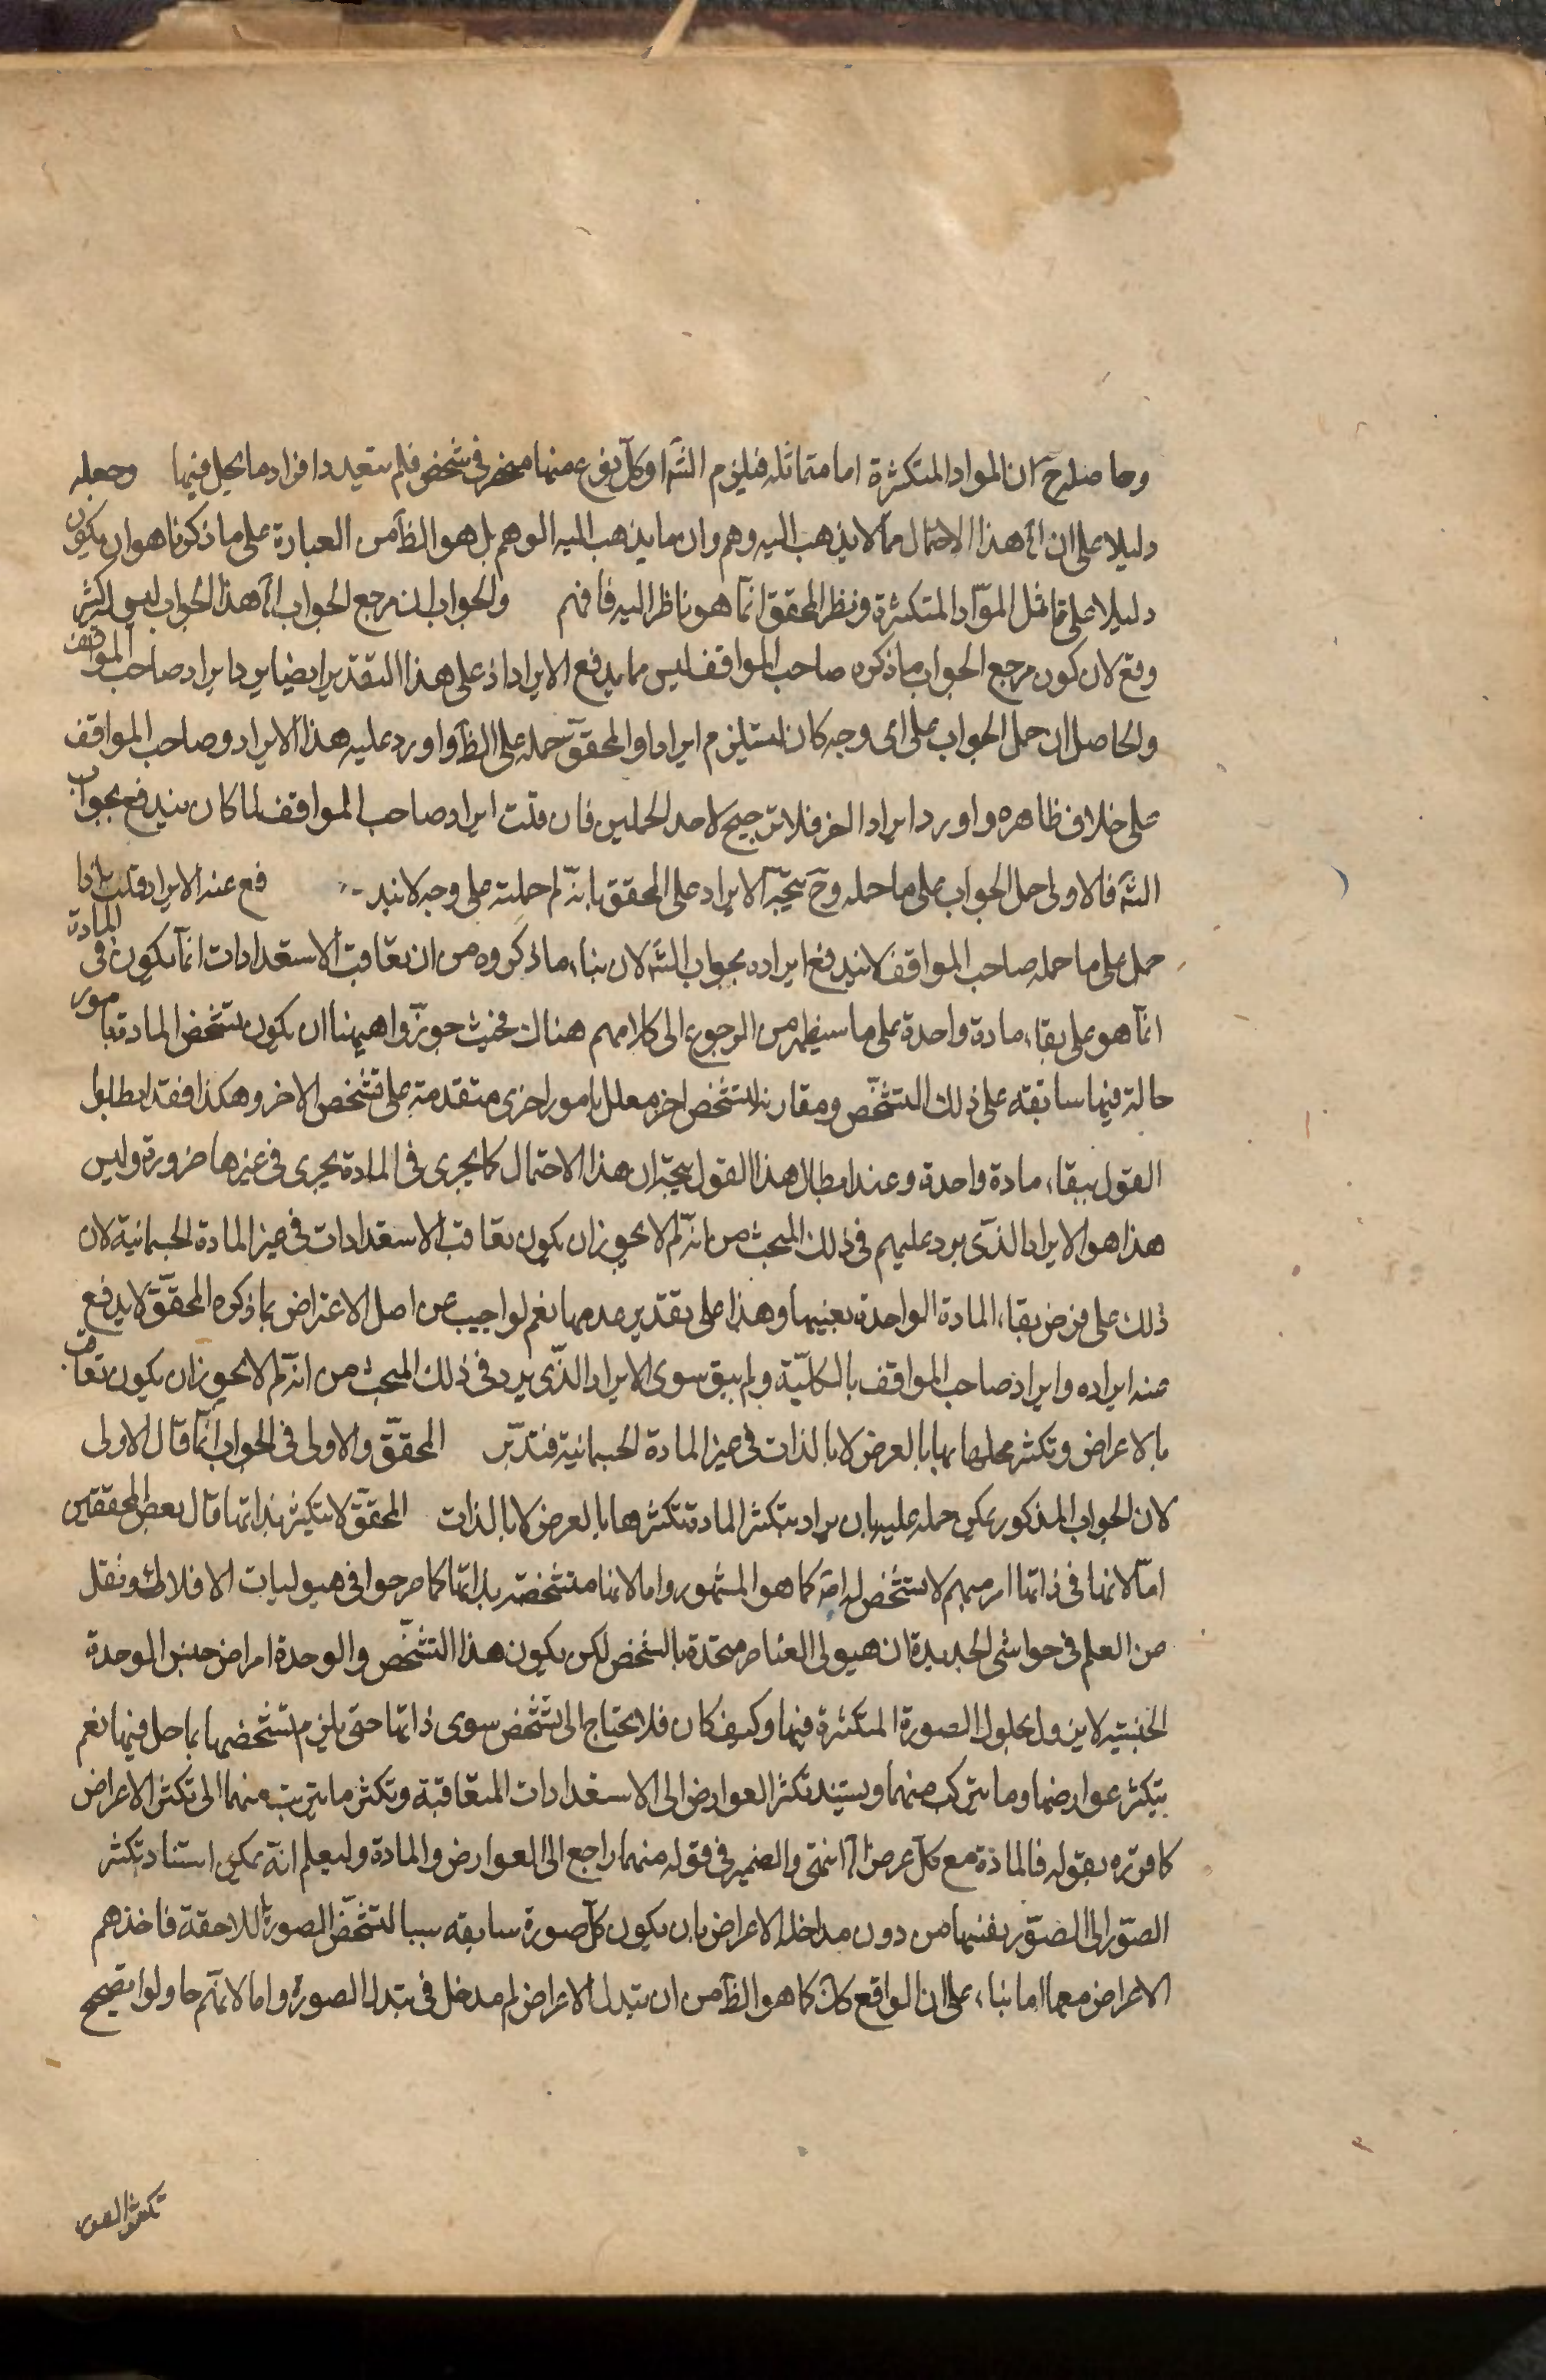 وحاصله ح ان المواد المتكثرة اما متماثلة فيلزم التسه او كل نوع منها منحصر في شخص فلم يتعدد افراد ما يحل فيها وجعله
دليلا على ان هذا الاحتمال مما لا يذهب اليه وهم وان ما يذهب اليه الوهم بل هو الظ من العبارة على ما ذكرنا هو ان يكون
دليلا على تماثل المواد المتكثرة ونظر المحقق انما هو ناظر اليه فافهم والجواب ان مرجع الجواب الخ هذا الجواب ليس له كثير
وقع لان كون مرجع الجواب ما ذكره صاحب المواقف ليس مما يدفع الايراد اذ على هذا التقدير ايضا يرد ايراد صاحب المواقف
والحاصل ان حمل الجواب على اى وجه كان يستلزم ايرادا والمحقق حمله على الظ واورد عليه هذا الايراد وصاحب المواقف
على خلاف ظاهره واورد ايرادا اخر فلا ترجيح لاحد الحملين فان قلت ايراد صاحب المواقف لما كان يندفع بجواب
الشه فالاولى حمل الجواب على ما حمله وح يتجه الايراد على المحقق بانه لم حملته على وجه لا يند فع عنه الايراد قلت اذا
حمل على ما حمله صاحب المواقف لا يندفع ايراده بجواب الشه لان بناء ما ذكروه من ان تعاقب الاستعدادات انما يكون في المادة
انما هو على بقاء مادة واحدة على ما سيظهر من الرجوع الى كلامهم هناك فحيث جوزوا هيهنا ان يكون تشخص المادة بامور
حالة فيها سابقة على ذلك التشخص ومقارنة لتشخص اخر معلل بامور اخرى متقدمة على تشخص الاخر وهكذا فقد ابطلوا
القول ببقاء مادة واحدة وعند ابطال هذا القول يتجه ان هذا الاحتمال كما يجرى في المادة يجرى في غيرها ضرورة وليس
هذا هو الايراد الذى يرد عليهم في ذلك المبحث من انه لم لا يجوز ان يكون تعاقب الاستعدادات في غير المادة الجسمانية لان
ذلك على فرض بقاء المادة الواحدة بعينها وهذا على تقدير عدمها نعم لو اجيب عن اصل الاعتراض بما ذكره المحقق لا يدفع
عنه ايراده وايراد صاحب المواقف بالكلية ولم يبق سوى الايراد الذى يرد في ذلك المبحث من انه لم لا يجوز ان يكون تعاقب
بالاعراض وتكثر محلها بها بالعرض لا بالذات في غير المادة الجسمانية فتدبر المحقق والاولى في الجواب انما قال الاولى
لان الجواب المذكور يمكن حمله عليه بان يراد بتكثر المادة تكثرها بالعرض لا بالذات المحقق لا يتكثر بذاتها قال بعض المحققين
اما لانها في ذاتها امر مبهم لا تشخص له اصلا كما هو المشهور واما لانها متشخصة بذاتها كما صرحوا في هيوليات الافلاك ونقل
من العلم في حواشى الجديدة ان هيولى العناصر متحدة بالشخص لكن يكون هذا التشخص والوحدة امرا من جنس الوحدة
الجنسية لا يزول بحلول الصورة المتكثرة فيها وكيف كان فلا يحتاج الى تشخص سوى ذاتها حتى يلزم تشخصها بما حل فيها نعم
يتكثر عوارضها وما يتركب منهما ويستند تكثر العوارض الى الاستعدادات المتعاقبة وتكثر ما يترتب منهما الى تكثر الاعراض
كما قرره بقوله فالمادة مع كل عرض الخ انتهى والضمير في قوله منهما راجع الى العوارض والمادة وليعلم انه يمكن استناد تكثر
الصور الى الصور بنفسها من دون مداخلة الاعراض بان يكون كل صورة سابقه سببا لتشخص الصورة اللاحقة فاخذهم
الاعراض معها اما بناء على ان الواقع كان كما هو الظ من ان تبدل الاعراض لم مدخل في تبدل الصورة واما لانهم حاولوا تصحيح
تكثر الصور